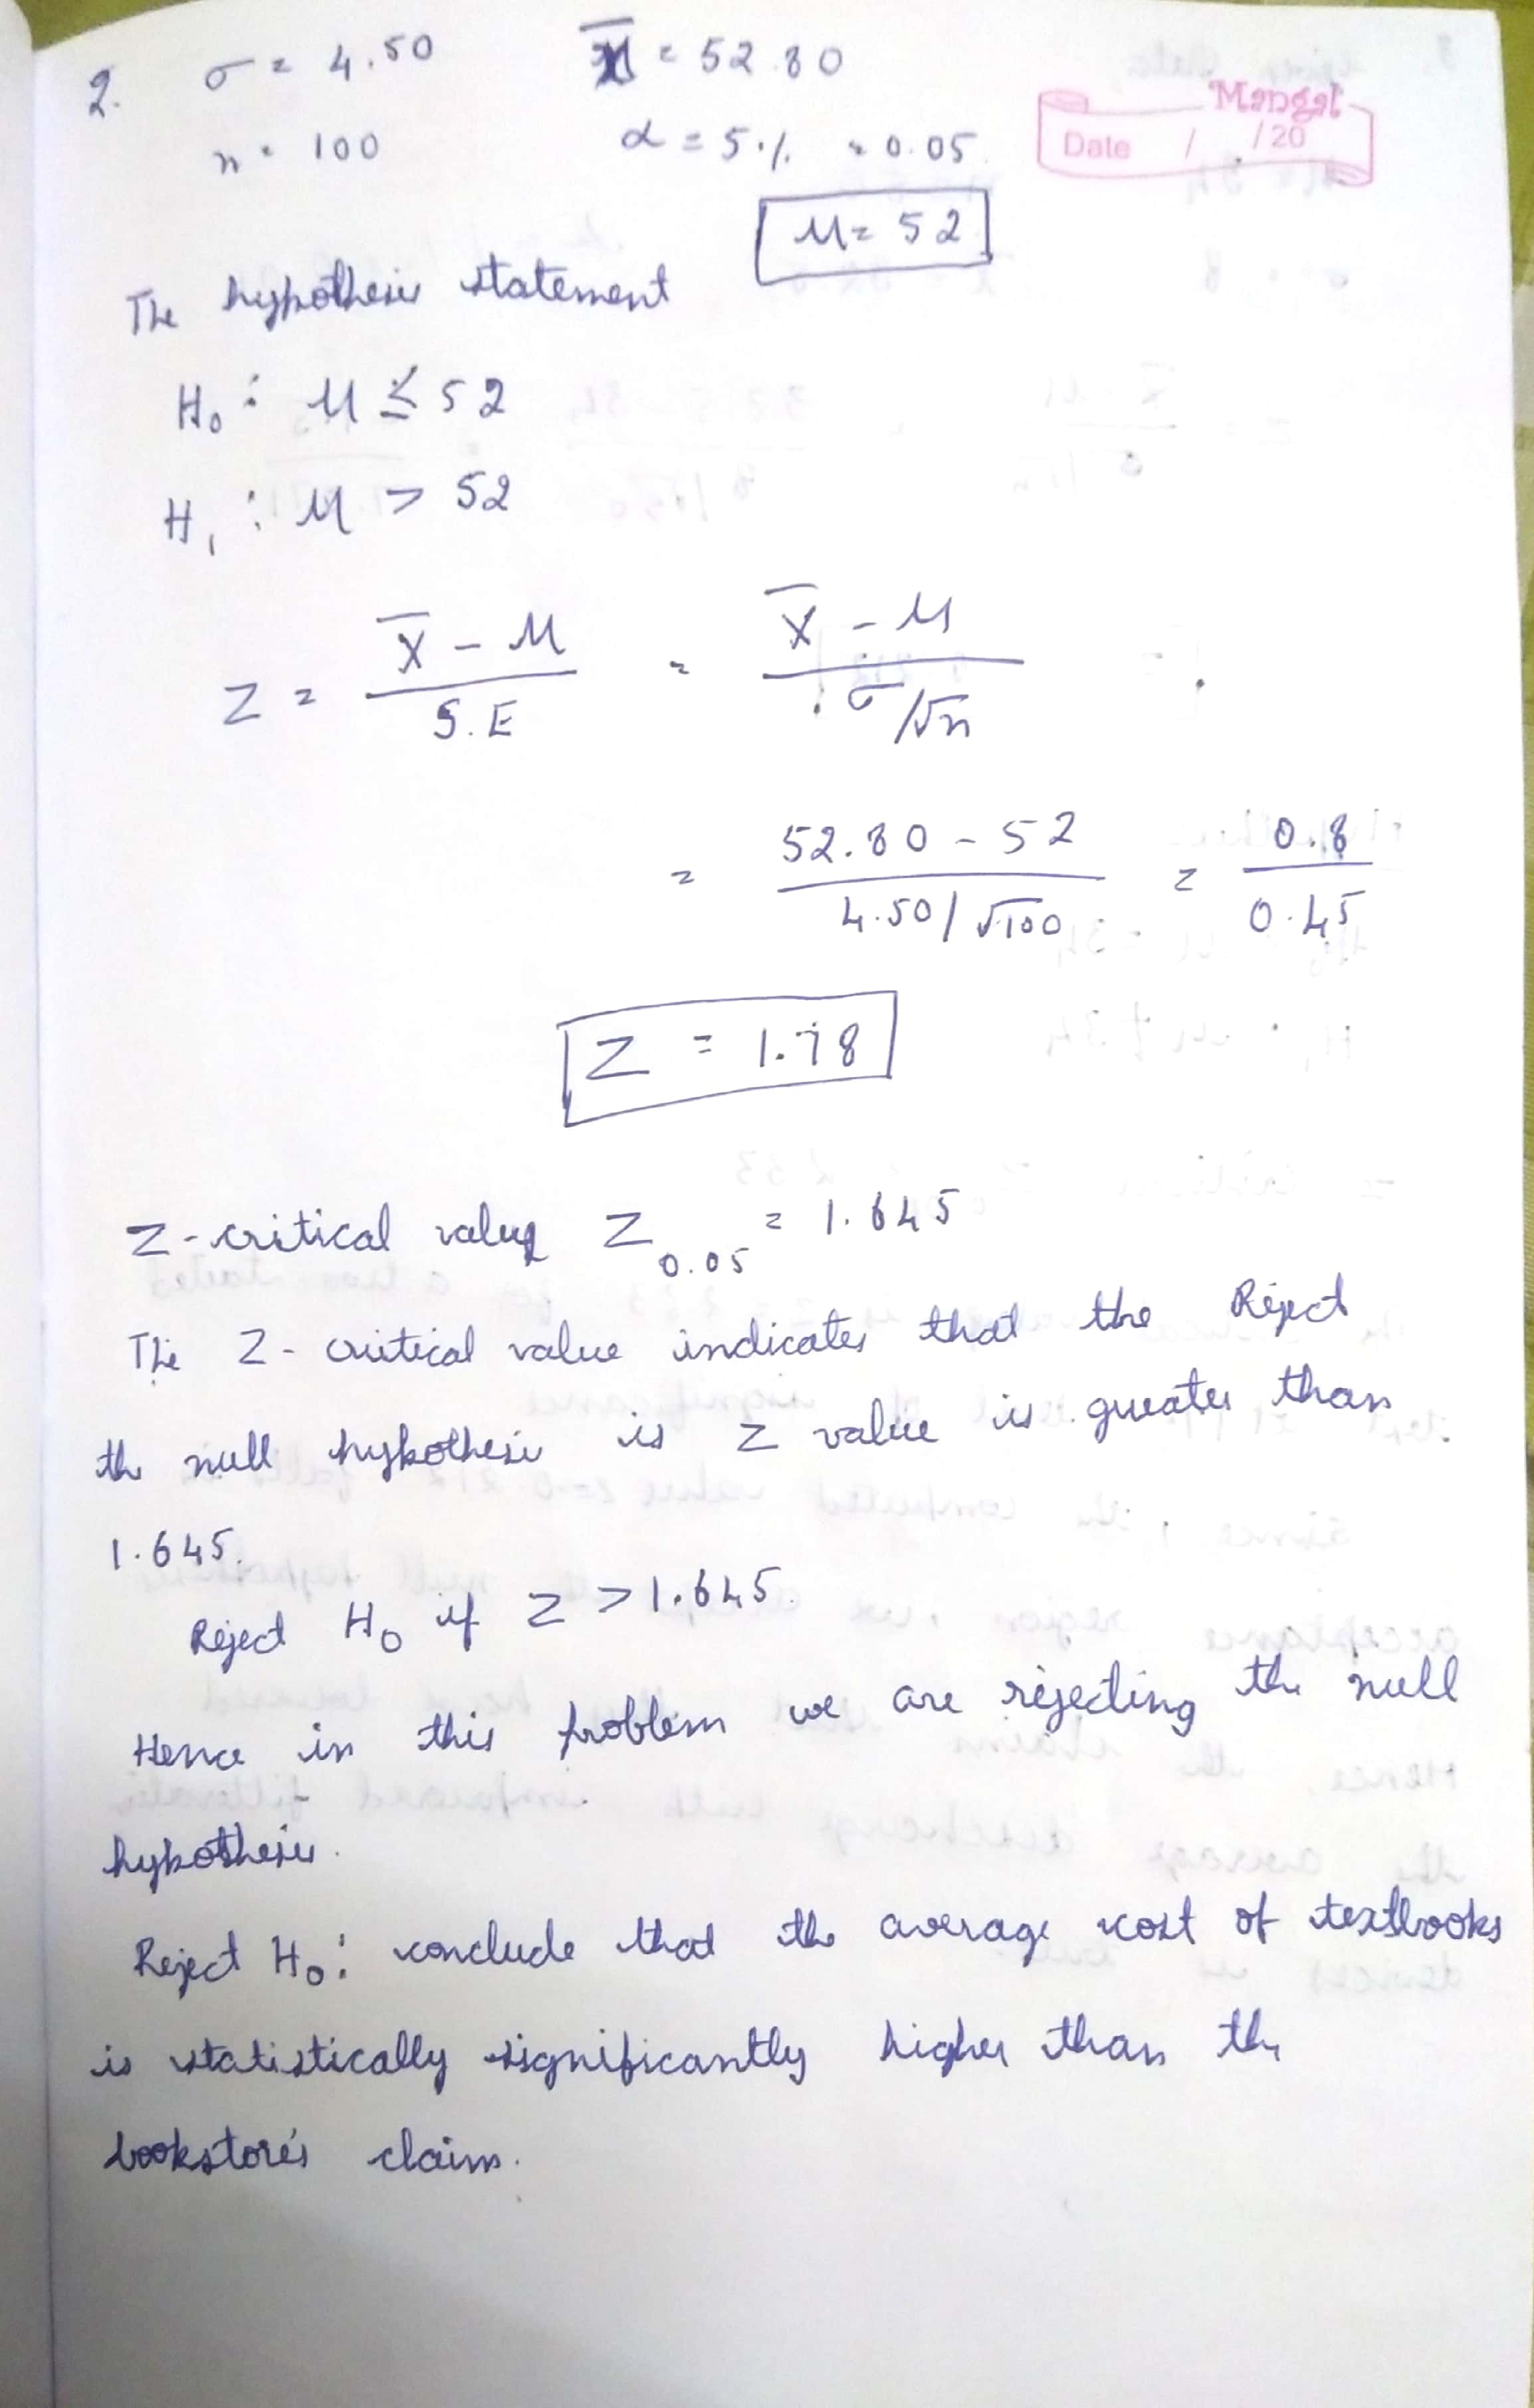 2. σ = 4.50 x̄ = 52.80
n = 100 α = 5% = 0.05
Mangal
Date / /20
μ = 52
The hypothesis statement
H₀ : μ ≤ 52
H₁ : μ > 52
Z = (X̄ - μ) / S.E = (X̄ - μ) / (σ/√n)
= (52.80 - 52) / (4.50/√100) = 0.8 / 0.45
Z = 1.78
Z-critical value Z₀.₀₅ = 1.645
The Z-critical value indicates that the Reject
the null hypothesis is Z value is greater than
1.645.
Reject H₀ if Z > 1.645.
Hence in this problem we are rejecting the null
hypothesis.
Reject H₀: conclude that the average cost of textbooks
is statistically significantly higher than the
bookstore's claim.